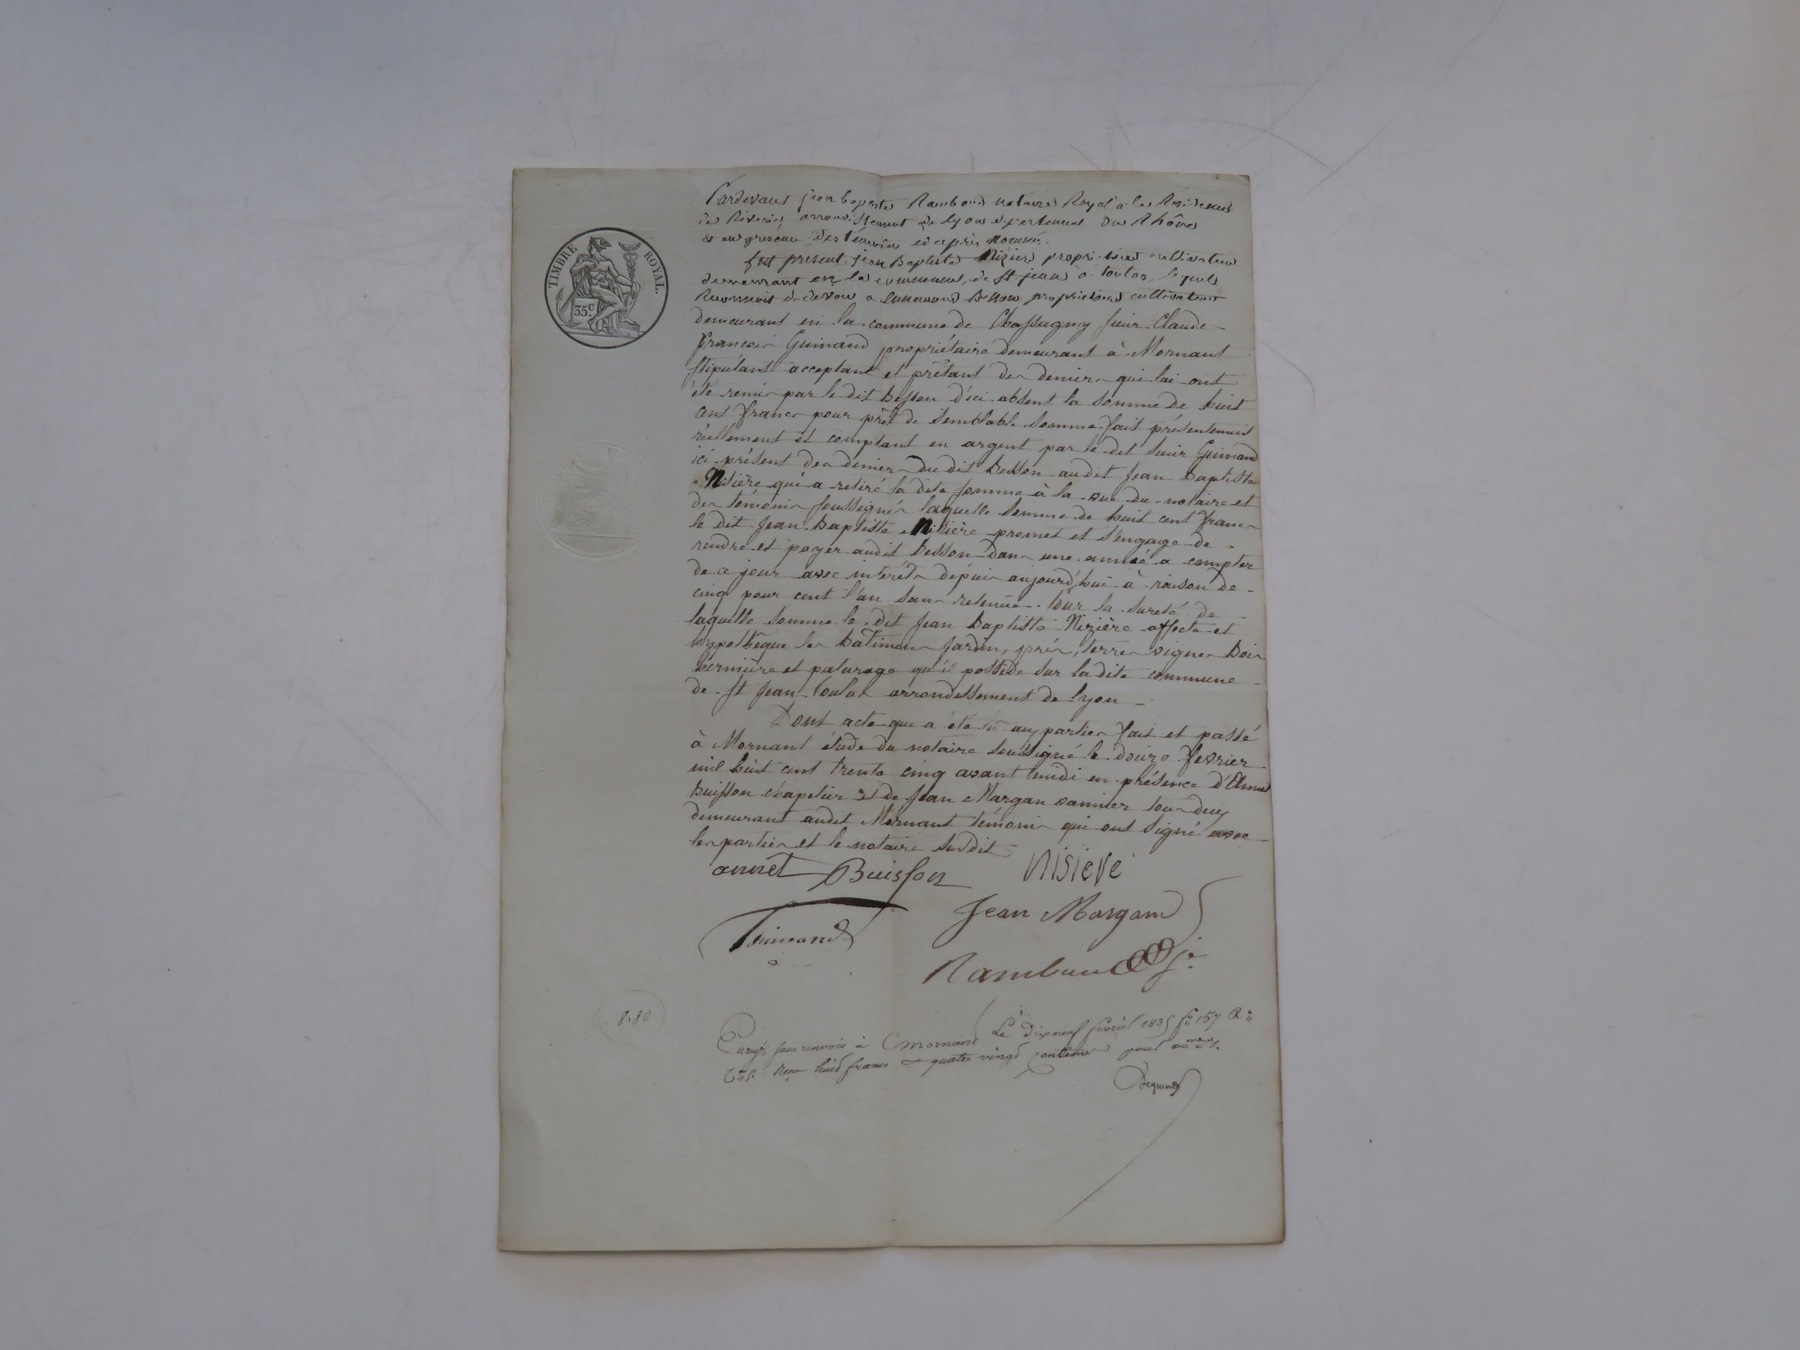 TIMBRE ROYAL.
35c.
Pardevant jean baptiste Rambaud notaire Royal à la Résidence
de Riverie arrondissement de Lyon département du Rhône
& en présence des témoins ci après nommés.
fut présent jean Baptiste Nizier propriétaire cultivateur
demeurant en la commune de St jean à toulas, lequel
Reconnoit devoir a Besson propriétaire cultivateur
demeurant en la commune de Chassagny sieur Claude
françois Guinand propriétaire demeurant à Mornant
stipulant acceptant et prêtant des deniers qui lui ont
été remis par le dit Besson d'ici absent la somme de huit
cent francs pour prêt de semblable somme fait présentement
réellement et comptant en argent par le dit sieur Guinand
ici présent des deniers du dit Besson au dit Jean Baptiste
Nisière qui a retiré la dite somme à la vue du notaire et
des témoins soussignés laquelle somme de huit cent francs
le dit Jean Baptiste Nisière promet et s'engage de
rendre et payer audit Besson dans une année a compter
de ce jour avec intérêts dépuis aujourd'hui à raison de
cinq pour cent l'an sans retenue. Pour la sureté de
laquelle somme le dit Jean Baptiste Nizière affecte et
hyppothèque les batimens jardin, prés, terres vignes bois
vernière et paturage qu'il possède sur la dite commune
de St Jean toulas arrondissement de Lyon
Dont acte que a été lu aux parties fait et passé
à Mornant étude du notaire soussigné le douze février
mil huit cent trente cinq avant midi en présence d'Annet
buisson chapelier et de Jean Margan vannier tous deux
demeurant audit Mornant témoins qui ont signé avec
les parties et le notaire susdit
annet Buisson nisieve
Jean Margand
Guinand
Rambaud jne
8.80
Enregé sans renvois à Mornant Le dix neuf février 1835 fo 157 Ro
Reçu huit francs quatre vingt centimes pour